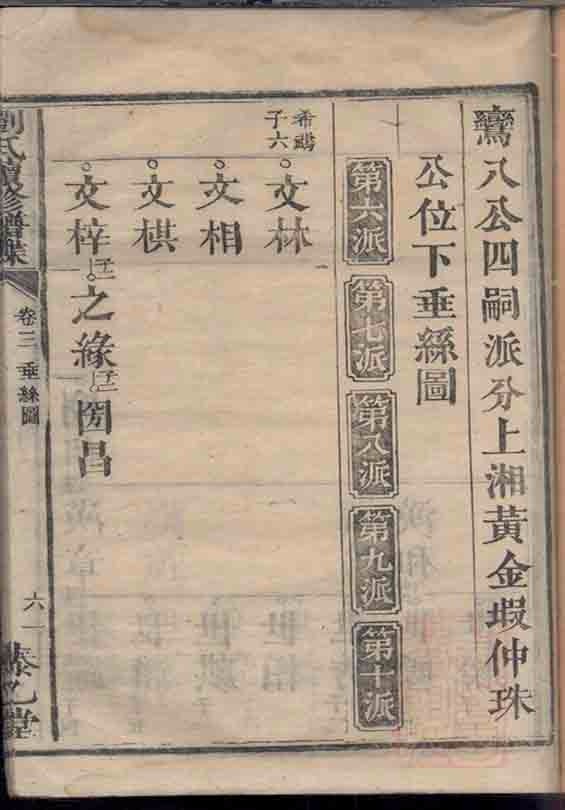 鸞八公四嗣派分上湘黃金塅仲珠
公位下垂絲圖
第六派 第七派 第八派 第九派 第十派
希鵷子六
文林
文相
文棋
文梓 子一 之緣 子一 國昌
劉氏續修譜牒 卷三 垂絲圖 六一 藜乙堂